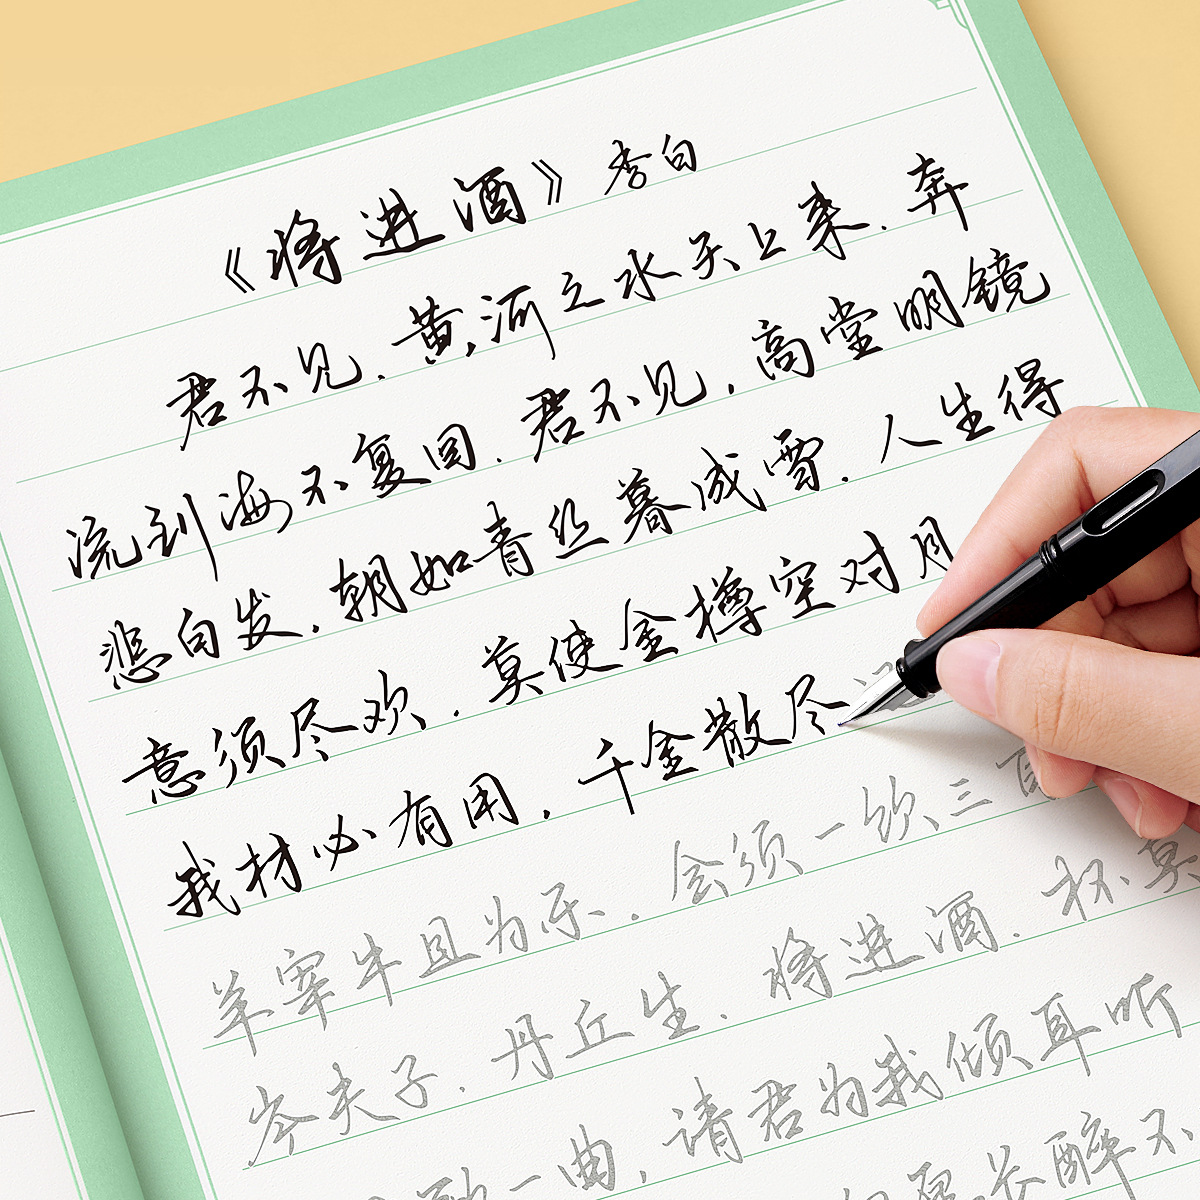 《将进酒》李白
君不见.黄河之水天上来.奔
流到海不复回.君不见.高堂明镜
悲白发.朝如青丝暮成雪.人生得
意须尽欢.莫使金樽空对月
我材必有用.千金散尽还
羊宰牛且为乐.会须一饮三百
岑夫子.丹丘生.将进酒.杯莫
一曲,请君为我倾耳听
醉不